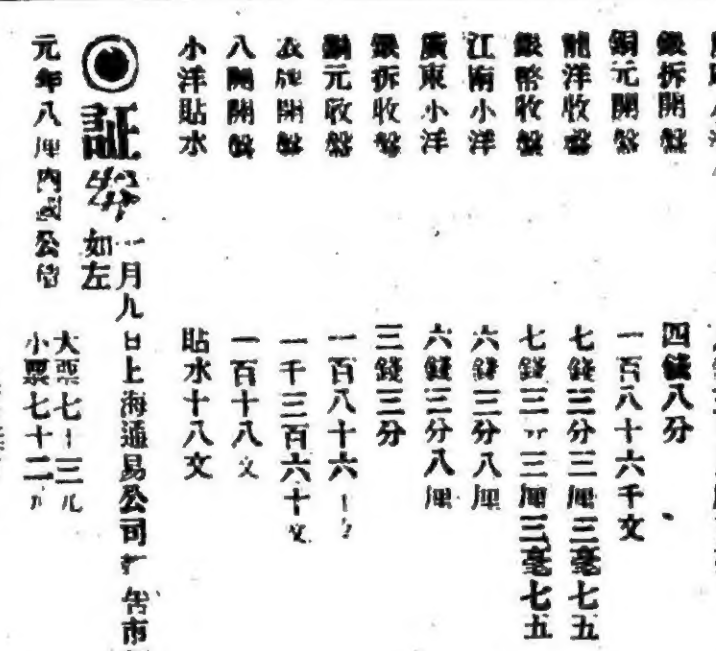 銀拆開盤 四錢八分
銅元開盤 一百八十六千文
龍洋收盤 七錢三分三厘三毫七五
銀幣收盤 七錢三分三厘三毫七五
江南小洋 六錢三分八厘
廣東小洋 六錢三分八厘
銀拆收盤 三錢三分
銅元收盤 一百八十六千
衣牌開盤 一千三百六十文
八開開盤 一百十八文
小洋貼水 貼水十八文
◉証券 一月九日上海通易公司報告市
如左
元年八厘內國公債 大票七十三元
小票七十二元